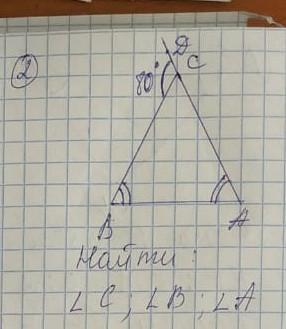 2
D
C
80°
B
A
Найти:
∠C; ∠B; ∠A